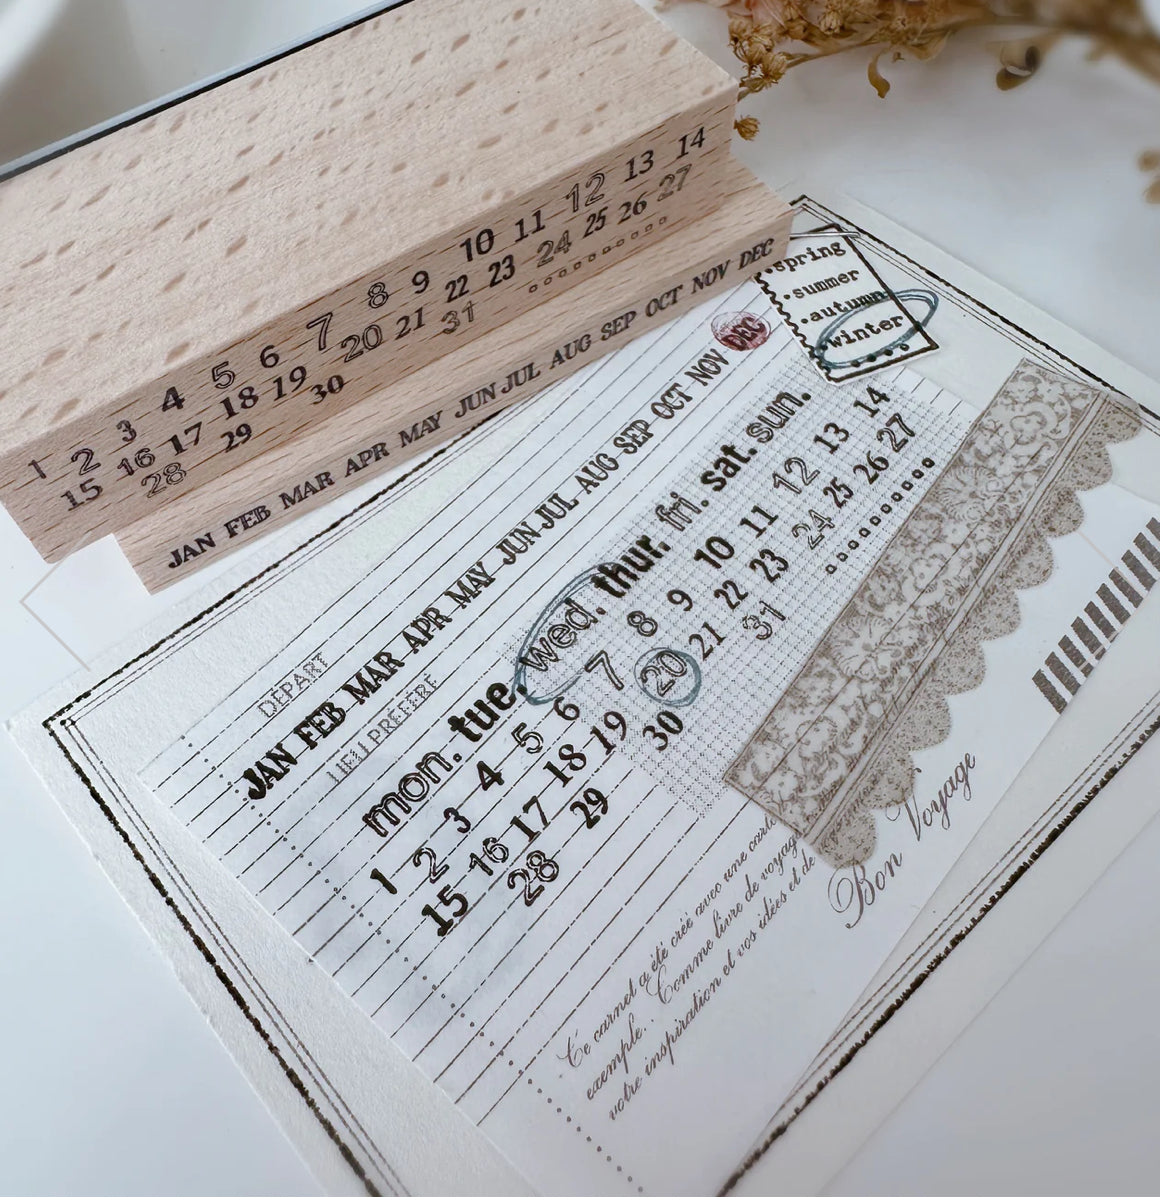 1 2 3 4 5 6 7 8 9 10 11 12 13 14
15 16 17 18 19 20 21 22 23 24 25 26 27
28 29 30 31
JAN FEB MAR APR MAY JUN JUL AUG SEP OCT NOV DEC
•spring
•summer
•autumn
•winter
DÉPART
JAN FEB MAR APR MAY JUN JUL AUG SEP OCT NOV DEC
LIEU PRÉFÉRÉ
mon. tue. wed. thur. fri. sat. sun.
1 2 3 4 5 6 7 8 9 10 11 12 13 14
15 16 17 18 19 20 21 22 23 24 25 26 27
28 29 30 31
Bon Voyage
Ce carnet a été créé avec une carte
exemple. Comme livre de voyage
votre inspiration et vos idées et de